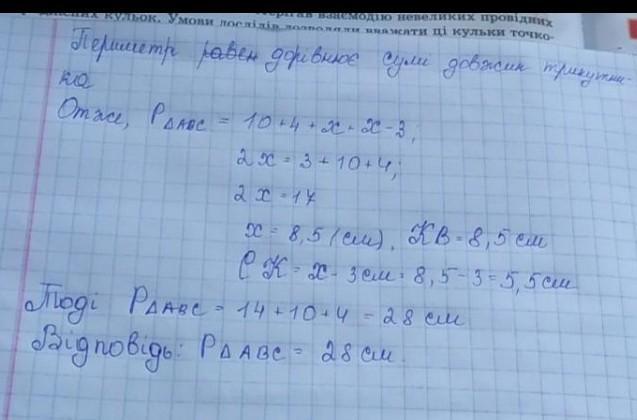 кульок. Умови дослідів дозволяли вважати ці кульки точко-
взаємодію невеликих провідних
Периметр равен дорівнює суми довжин трикутни-
ка
Отже, P△ABC = 10 + 4 + x + x - 3;
2x = 3 + 10 + 4;
2x = 17
x = 8,5 (см), KB = 8,5 см
CK = x - 3см = 8,5 - 3 = 5,5 см
Тоді P△ABC = 14 + 10 + 4 = 28 см
Відповідь: P△ABC = 28 см.